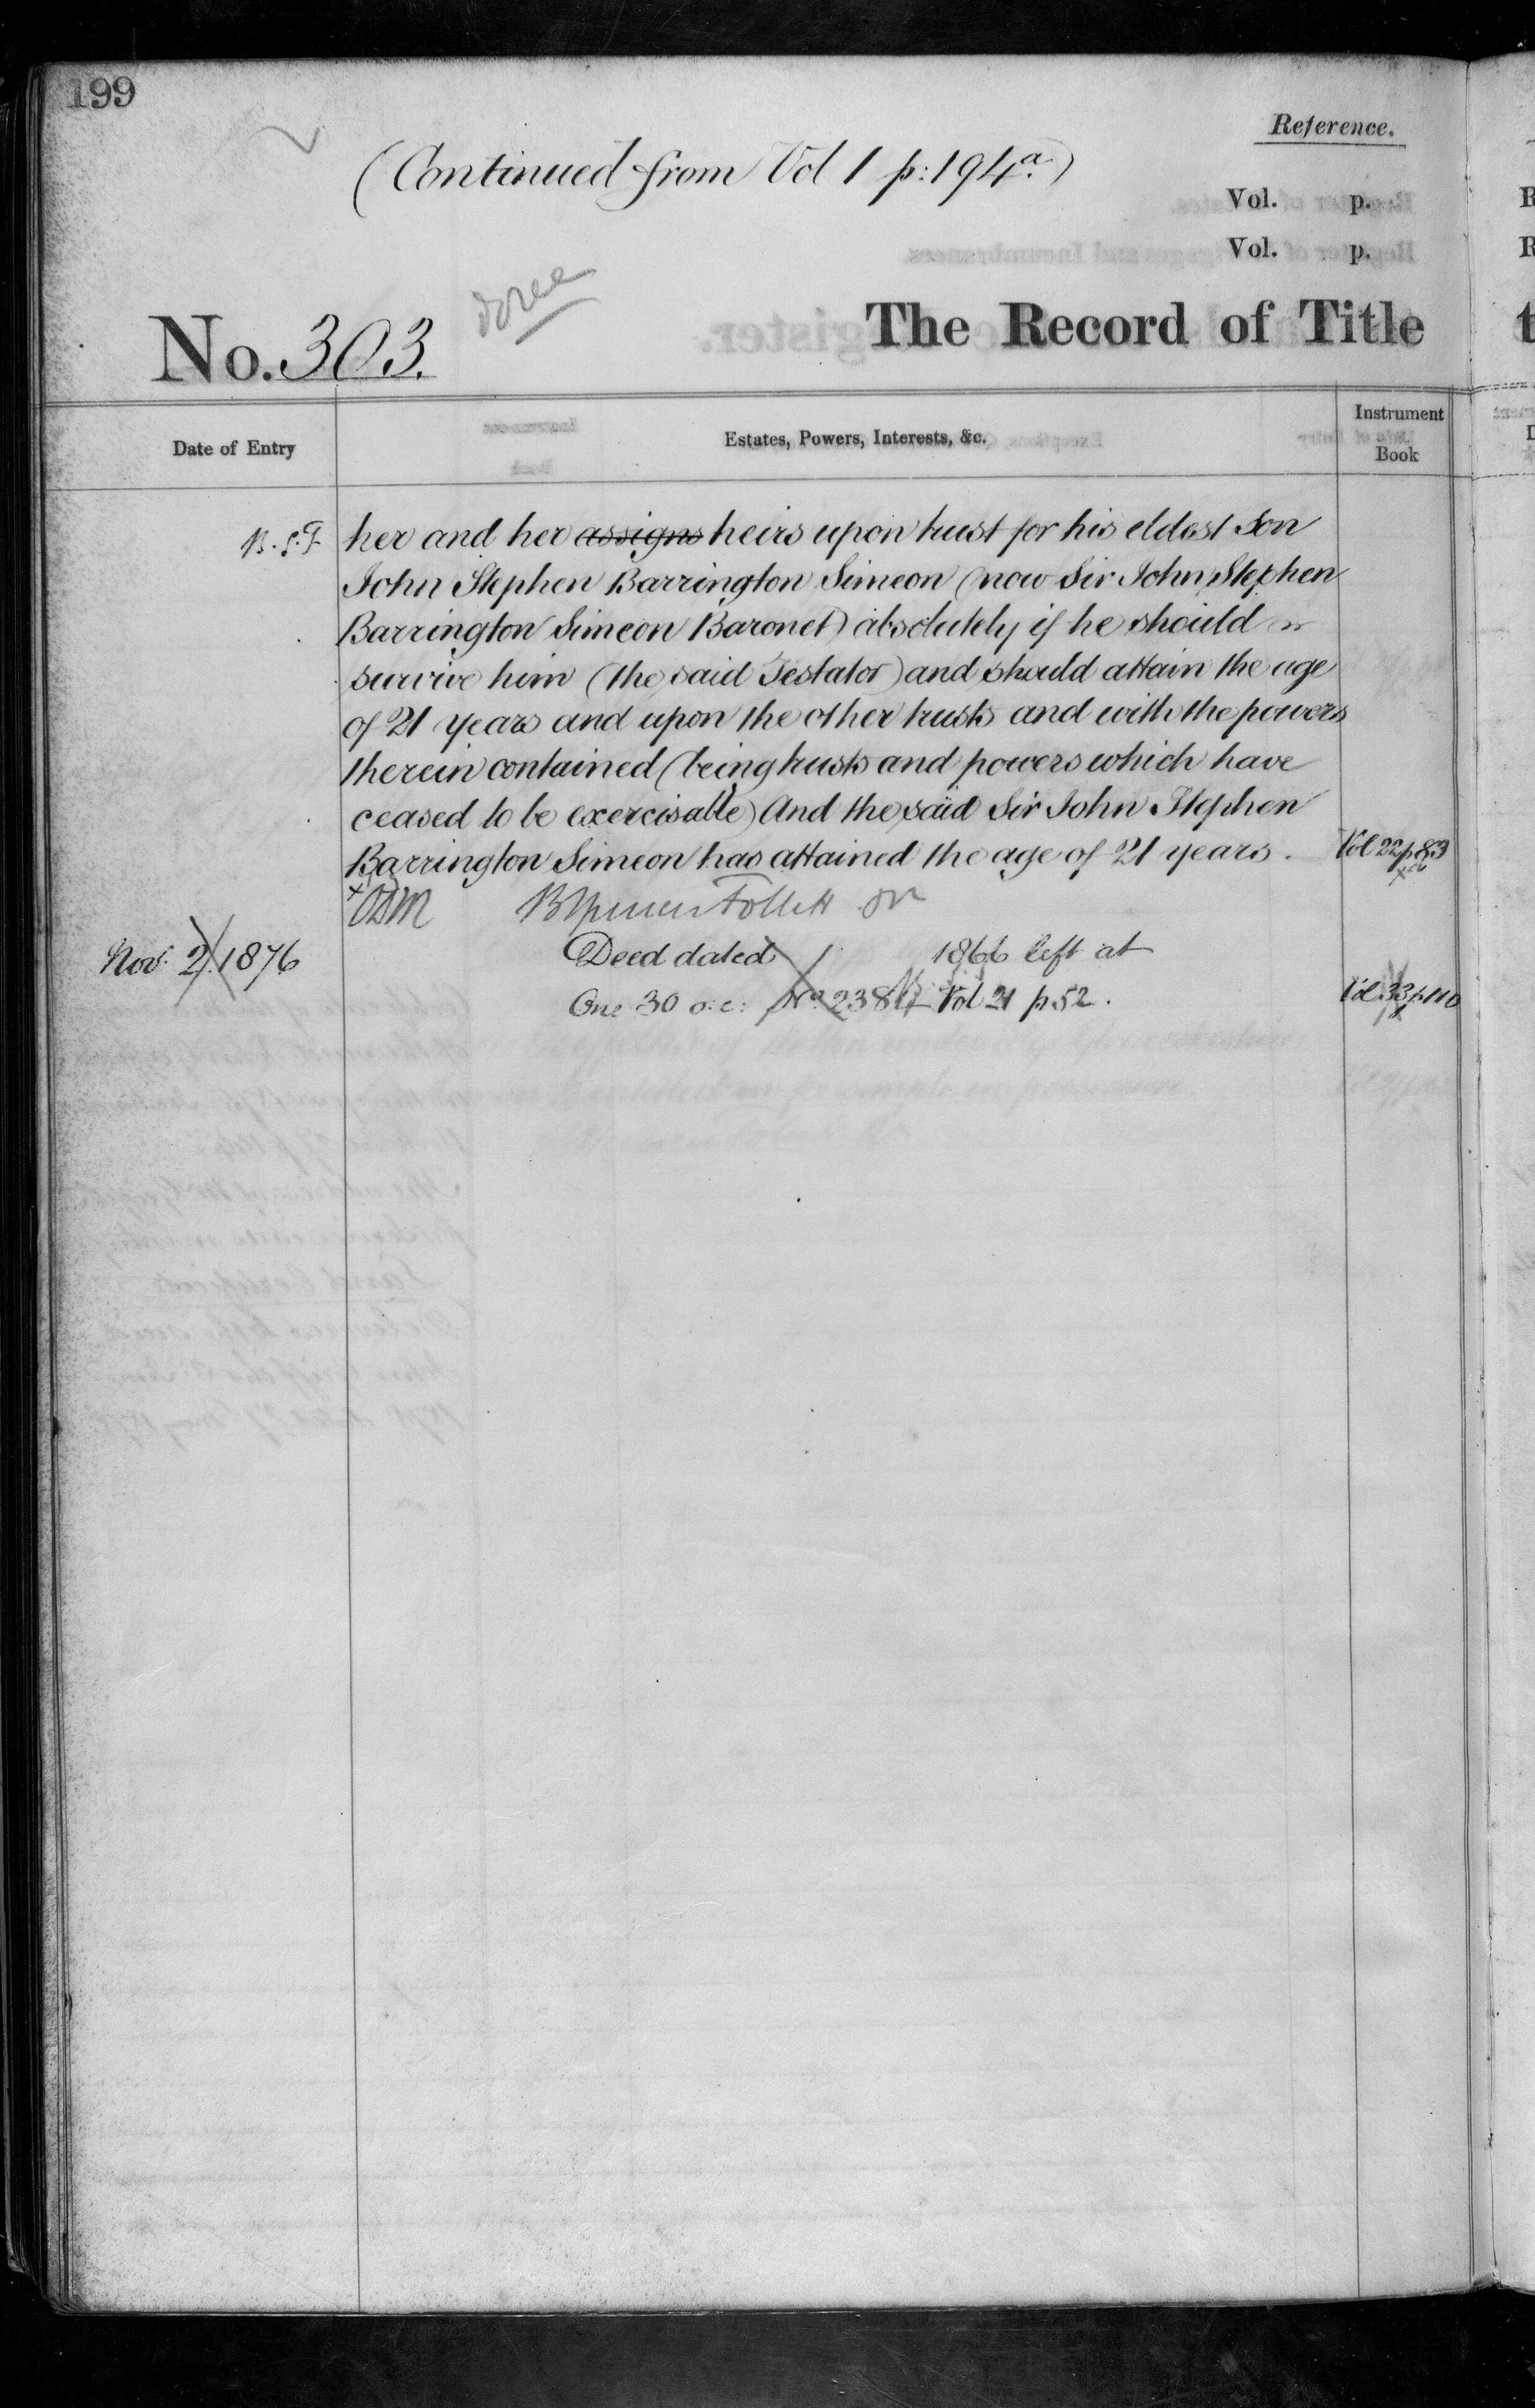 199
Reference.
(Continued from Vol 1 p: 194a.)
Vol. p.
Vol. p.
done
No. 303.
The Record of Title
Date of Entry
Estates, Powers, Interests, &c.
Instrument Book
B.S.F. her and her assigns heirs upon trust for his eldest Son
John Stephen Barrington Simeon (now Sir John Stephen
Barrington Simeon Baronet) absolutely if he should
survive him (the said Testator) and should attain the age
of 21 years and upon the other trusts and with the powers
therein contained (being trusts and powers which have
ceased to be exercisable) And the said Sir John Stephen
Barrington Simeon has attained the age of 21 years. Vol 22 p 83
Follett
Nov. 2. 1876
Deed dated 1866 left at
One 30 o.c: No. Vol 21 p 52. Vol 33 p 110